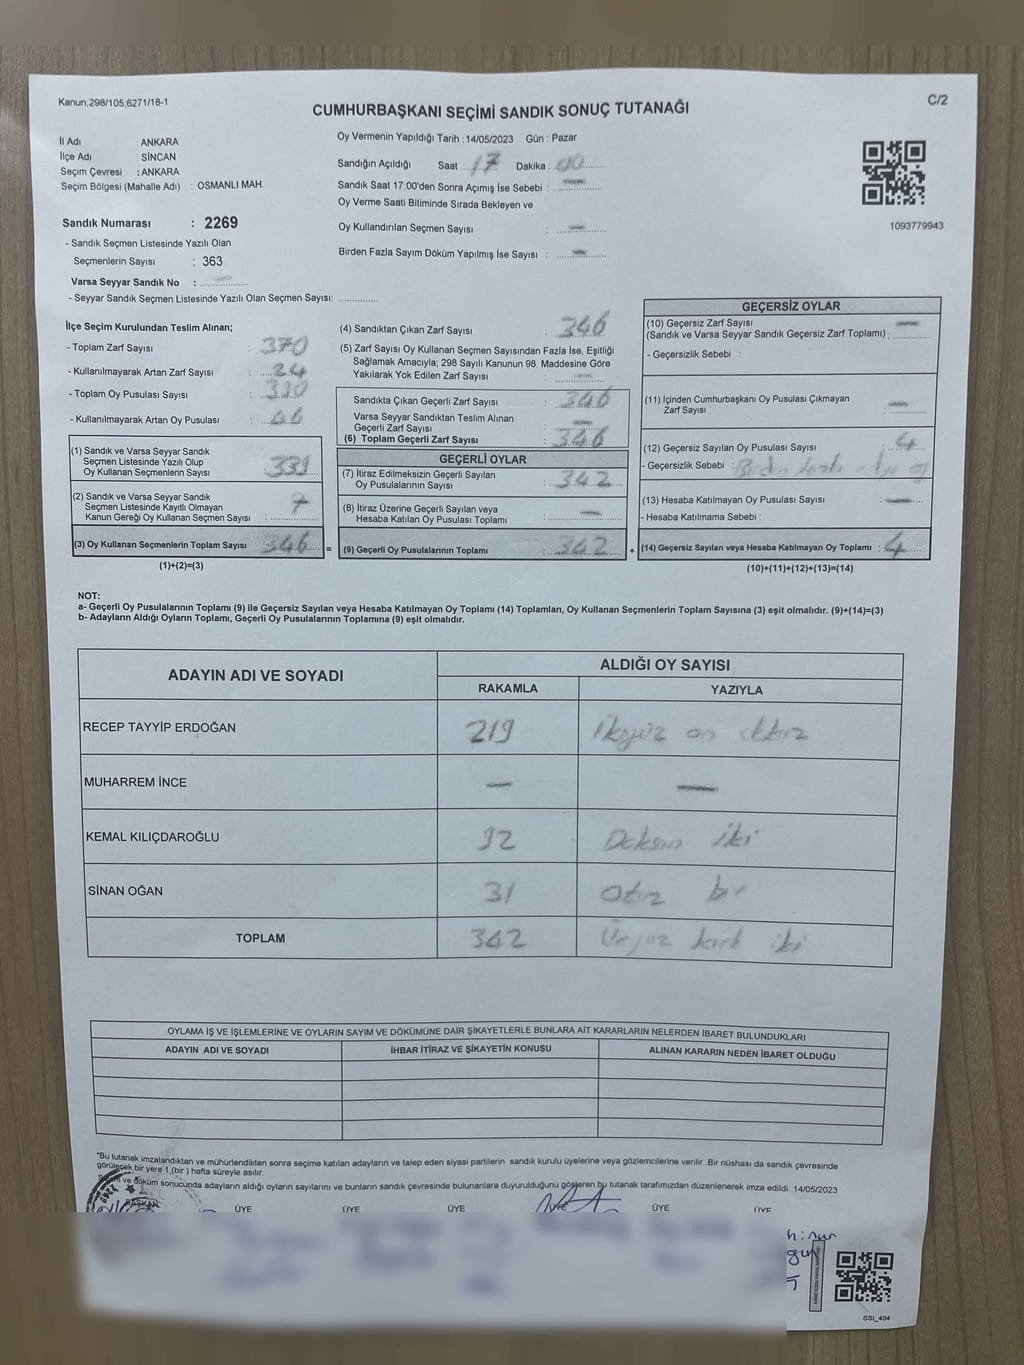 Kanun;298/105;6271/18-1
C/2
CUMHURBAŞKANI SEÇİMİ SANDIK SONUÇ TUTANAĞI
İl Adı : ANKARA
İlçe Adı : SİNCAN
Seçim Çevresi : ANKARA
Seçim Bölgesi (Mahalle Adı) : OSMANLI MAH.
Sandık Numarası : 2269
- Sandık Seçmen Listesinde Yazılı Olan
Seçmenlerin Sayısı : 363
Varsa Seyyar Sandık No :
- Seyyar Sandık Seçmen Listesinde Yazılı Olan Seçmen Sayısı:
Oy Vermenin Yapıldığı Tarih : 14/05/2023 Gün : Pazar
Sandığın Açıldığı Saat : 17 Dakika : 00
Sandık Saat 17:00'den Sonra Açımış İse Sebebi : —
Oy Verme Saati Bitiminde Sırada Bekleyen ve
Oy Kullandırılan Seçmen Sayısı : —
Birden Fazla Sayım Döküm Yapılmış İse Sayısı : —
1093779943
İlçe Seçim Kurulundan Teslim Alınan;
- Toplam Zarf Sayısı : 370
- Kullanılmayarak Artan Zarf Sayısı : 24
- Toplam Oy Pusulası Sayısı :
- Kullanılmayarak Artan Oy Pusulası :
(1) Sandık ve Varsa Seyyar Sandık
Seçmen Listesinde Yazılı Olup
Oy Kullanan Seçmenlerin Sayısı :
(2) Sandık ve Varsa Seyyar Sandık
Seçmen Listesinde Kayıtlı Olmayan
Kanun Gereği Oy Kullanan Seçmen Sayısı : 7
(3) Oy Kullanan Seçmenlerin Toplam Sayısı : 346
(1)+(2)=(3)
(4) Sandıktan Çıkan Zarf Sayısı : 346
(5) Zarf Sayısı Oy Kullanan Seçmen Sayısından Fazla İse, Eşitliği
Sağlamak Amacıyla; 298 Sayılı Kanunun 98. Maddesine Göre
Yakılarak Yok Edilen Zarf Sayısı : —
Sandıkta Çıkan Geçerli Zarf Sayısı : 346
Varsa Seyyar Sandıktan Teslim Alınan
Geçerli Zarf Sayısı : —
(6) Toplam Geçerli Zarf Sayısı : 346
GEÇERLİ OYLAR
(7) İtiraz Edilmeksizin Geçerli Sayılan
Oy Pusulalarının Sayısı : 342
(8) İtiraz Üzerine Geçerli Sayılan veya
Hesaba Katılan Oy Pusulası Toplamı : —
= (9) Geçerli Oy Pusulalarının Toplamı : 342
GEÇERSİZ OYLAR
(10) Geçersiz Zarf Sayısı —
(Sandık ve Varsa Seyyar Sandık Geçersiz Zarf Toplamı) :
- Geçersizlik Sebebi :
(11) İçinden Cumhurbaşkanı Oy Pusulası Çıkmayan
Zarf Sayısı : —
(12) Geçersiz Sayılan Oy Pusulası Sayısı : 4
- Geçersizlik Sebebi : Birden fazla
(13) Hesaba Katılmayan Oy Pusulası Sayısı : —
- Hesaba Katılmama Sebebi :
+ (14) Geçersiz Sayılan veya Hesaba Katılmayan Oy Toplamı : 4
(10)+(11)+(12)+(13)=(14)
NOT:
a- Geçerli Oy Pusulalarının Toplamı (9) ile Geçersiz Sayılan veya Hesaba Katılmayan Oy Toplamı (14) Toplamları, Oy Kullanan Seçmenlerin Toplam Sayısına (3) eşit olmalıdır. (9)+(14)=(3)
b- Adayların Aldığı Oyların Toplamı, Geçerli Oy Pusulalarının Toplamına (9) eşit olmalıdır.
ADAYIN ADI VE SOYADI ALDIĞI OY SAYISI
RAKAMLA YAZIYLA
RECEP TAYYİP ERDOĞAN 219 İkiyüz on
MUHARREM İNCE — —
KEMAL KILIÇDAROĞLU 92 Doksan iki
SİNAN OĞAN 31 Otuz bir
TOPLAM 342 Üçyüz kırk iki
OYLAMA İŞ VE İŞLEMLERİNE VE OYLARIN SAYIM VE DÖKÜMÜNE DAİR ŞİKAYETLERLE BUNLARA AİT KARARLARIN NELERDEN İBARET BULUNDUKLARI
ADAYIN ADI VE SOYADI İHBAR İTİRAZ VE ŞİKAYETİN KONUSU ALINAN KARARIN NEDEN İBARET OLDUĞU
"Bu tutanak imzalandıktan ve mühürlendikten sonra seçime katılan adayların ve talep eden siyasi partilerin sandık kurulu üyelerine veya gözlemcilerine verilir. Bir nüshası da sandık çevresinde
görülecek bir yere 1 (bir) hafta süreyle asılır.
ve döküm sonucunda adayların aldığı oyların sayılarını ve bunların sandık çevresinde bulunanlara duyurulduğunu gösteren bu tutanak tarafımızdan düzenlenerek imza edildi. 14/05/2023
BAŞKAN ÜYE ÜYE ÜYE ÜYE ÜYE ÜYE
SSI_404